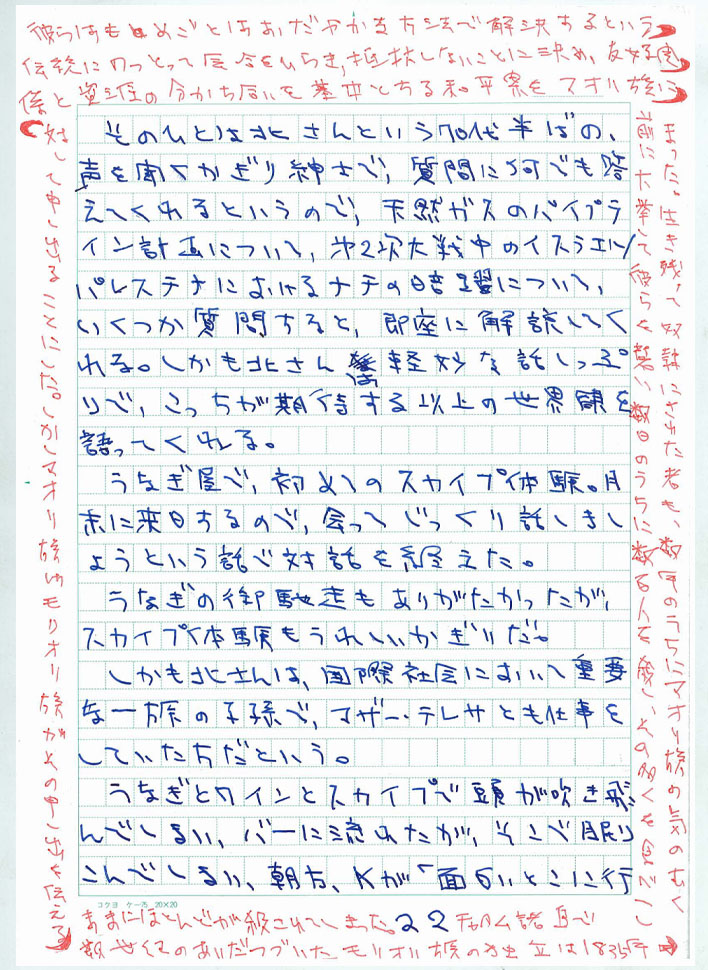 彼らはもめごとはおだやかな方法で解決するという
伝統にのっとって会合をひらき、抵抗しないことに決め、友好関
係と資源の分かち合いを基本とする和平案をマオリ族に
対して申し出ることにした。しかしマオリ族はモリオリ族がその申し出を伝える
前に大挙して彼らを襲い数日のうちに数百人を殺し、その多くを食べてし
まった。生き残って奴隷にされた者も、数年のうちにマオリ族の気のむく
ままにほとんどが殺されてしまった。22 チャタム諸島で
数世紀のあいだつづいたモリオリ族の独立は1835年
そのひとは北さんという70代半ばの、
声を聞くかぎり紳士で、質問に何でも答
えてくれるというので、天然ガスのパイプラ
イン計画について、第2次大戦中のイスラエル/
パレスチナにおけるナチの暗躍について、
いくつか質問すると、即座に解説してく
れる。しかも北さんは軽妙な話しっぷ
りで、こっちが期待する以上の世界観を
語ってくれる。
うなぎ屋で、初めてのスカイプ体験。月
末に来日するので、会ってじっくり話しまし
ょうという話で対話を終えた。
うなぎの御馳走もありがたかったが、
スカイプ体験もうれしいかぎりだ。
しかも北さんは、国際社会において重要
な一族の子孫で、マザー・テレサとも仕事を
していた方だという。
うなぎとワインとスカイプで頭が吹き飛
んでしまい、バーに流れたが、そこで眠り
こんでしまい、朝方、Kが「面白いとこに行
コクヨ ケー75 20×20